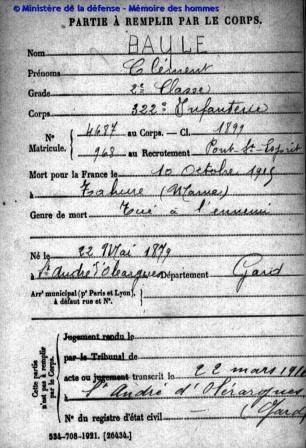 © Ministère de la défense - Mémoire des hommes
PARTIE À REMPLIR PAR LE CORPS.
Nom BAULE
Prénoms Clément
Grade 2e Classe
Corps 322e Infanterie
N° 4687 au Corps. — Cl. 1899
Matricule. 968 au Recrutement Pont St-Esprit
Mort pour la France le 10 Octobre 1915
à Tahure (Marne)
Genre de mort Tué à l'ennemi
Né le 22 Mai 1879
à St André d'Olérargues Département Gard
Arr^t municipal (p^r Paris et Lyon),
à défaut rue et N°.
Cette partie
n'est pas à remplir
par le Corps.
Jugement rendu le
par le Tribunal de
acte ou jugement transcrit le 22 mars 1916
à St André d'Olérargues
(Gard)
N° du registre d'état civil
534-708-1921. [26434.]